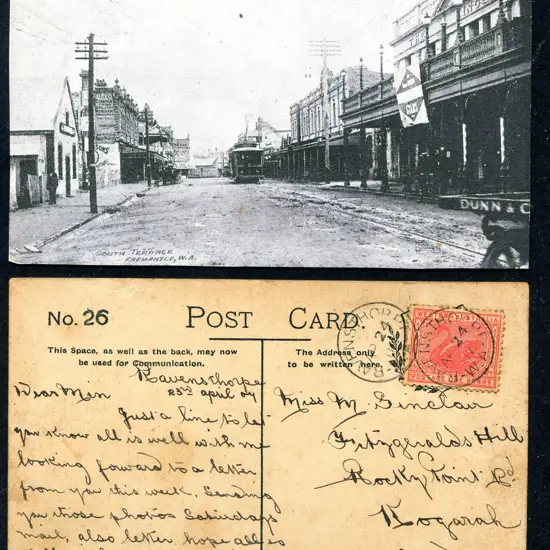 DUNN & C
SOUTH TERRACE
FREMANTLE, W.A.
No. 26
POST CARD
This Space, as well as the back, may now
be used for Communication.
The Address only
to be written here.
RAVENSTHORPE
Ravensthorpe
23rd april 07
Dear Min
Just a line to let
you know all is well with me
looking forward to a letter
from you this week. Sending
you those photos Saturdays
mail, also letter, hope all is
Miss M. Sinclair
Fitzgeralds Hill
Rocky Point Rd
Kogarah